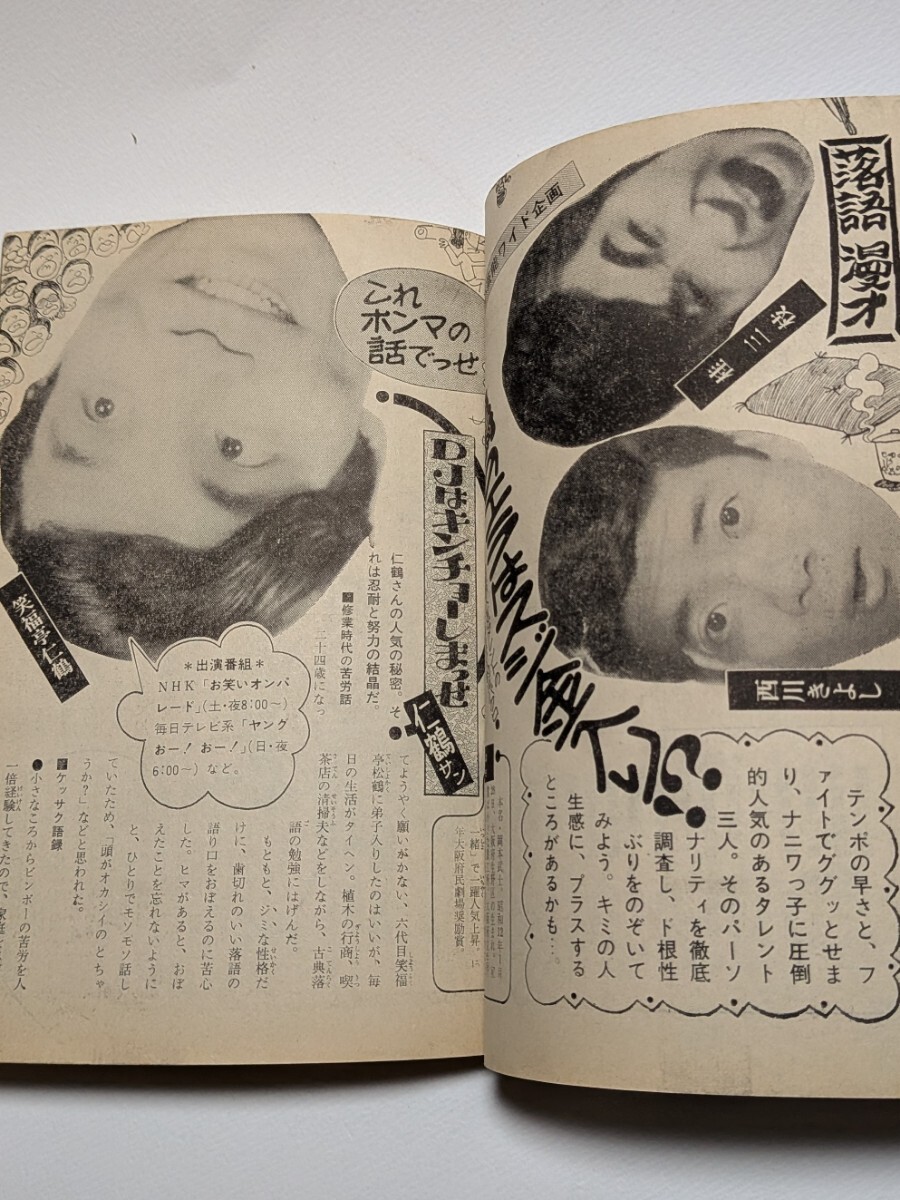 落語 漫才
ワイド企画
桂三枝
西川きよし
テンポの早さと、フ
ァイトでググッとせま
り、ナニワっ子に圧倒
的人気のあるタレント
三人。そのパーソ
ナリティを徹底
調査し、ド根性
ぶりをのぞいて
みよう。キミの人
生感に、プラスする
ところがあるかも…
これ
ホンマの
話でっせ
DJはキンチョーしまっせ
仁鶴サン
笑福亭仁鶴
仁鶴さんの人気の秘密。そ
れは忍耐と努力の結晶だ。
修業時代の苦労話
二十四歳になっ
てようやく願いがかない、六代目笑福
亭松鶴に弟子入りしたのはいいが、毎
日の生活がタイヘン。植木の行商、喫
茶店の清掃夫などをしながら、古典落
語の勉強にはげんだ。
もともと、ジミな性格だ
けに、歯切れのいい落語の
語り口をおぼえるのに苦心
した。ヒマがあると、おぼ
えたことを忘れないように
と、ひとりでモソモソ話し
ていたため、「頭がオカシイのとちゃ
うか?」などと思われた。
ケッサク語録
●小さなころからビンボーの苦労を人
一倍経験してきたので、
*出演番組*
NHK「お笑いオンパ
レード」(土・夜8:00〜)
毎日テレビ系「ヤング
おー!おー!」(日・夜
6:00〜)など。